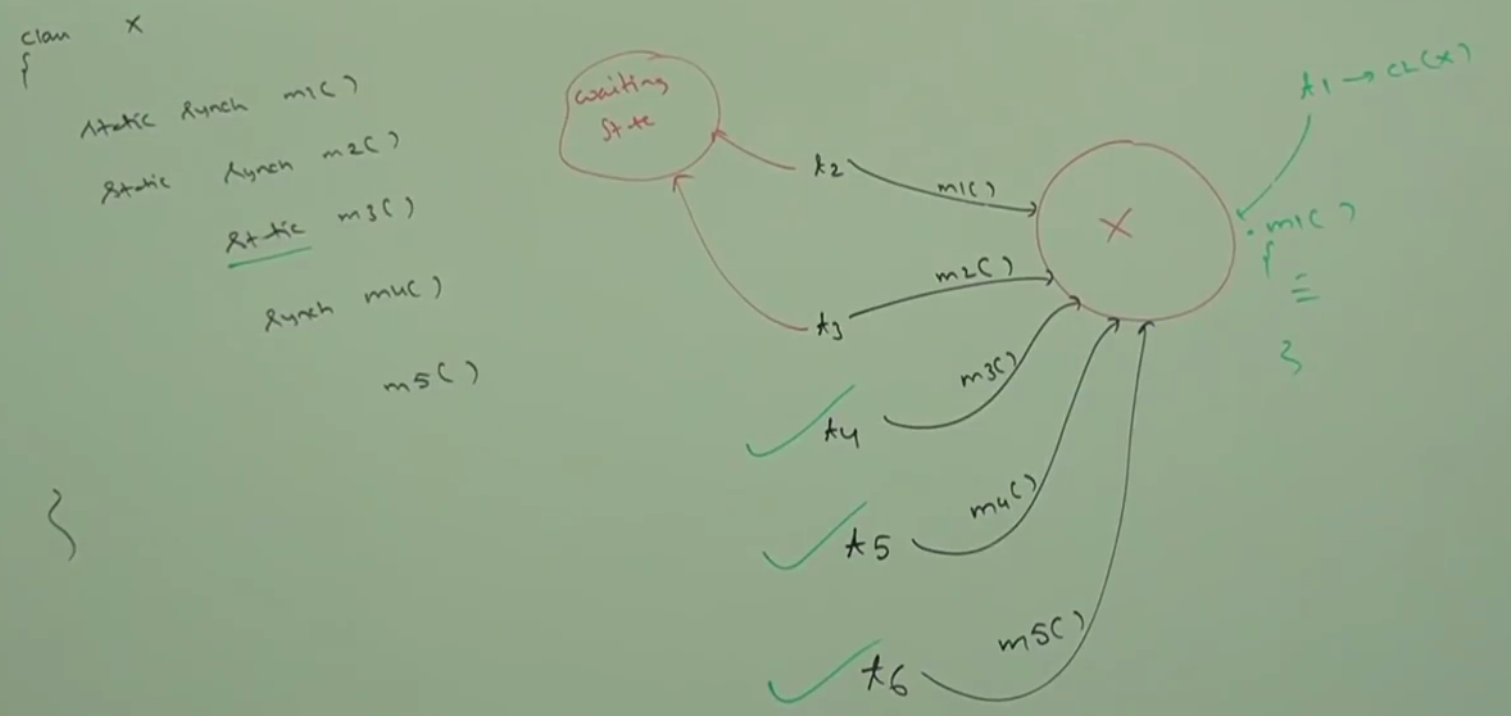 class X
{
static synch m1( )
static synch m2( )
static m3( )
synch m4( )
m5( )
}
waiting
state
t2
m1( )
t3
m2( )
t4
m3( )
t5
m4( )
t6
m5( )
X
t1 → CL(X)
m1( )
{
}